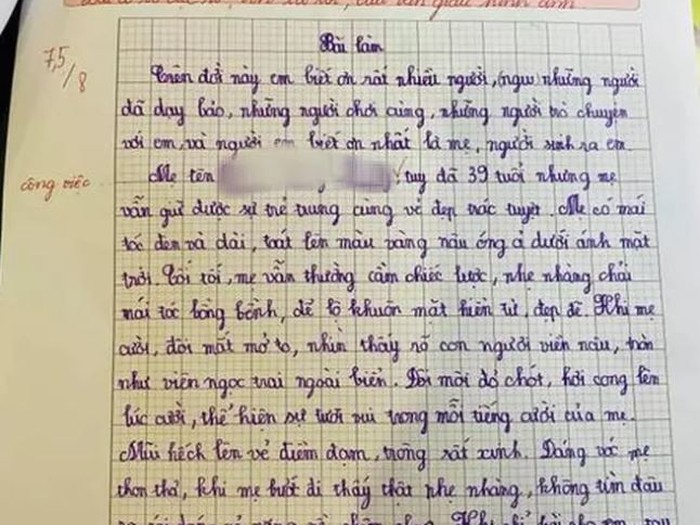 Bài làm
7,5/8
Trên đời này em biết ơn rất nhiều người, (ngư) những người
đã dạy bảo, những người chơi cùng, những người trò chuyện
với em, và người em biết ơn nhất là mẹ, người sinh ra em.
Mẹ tên tuy đã 39 tuổi nhưng mẹ
công việc
vẫn giữ được sự trẻ trung cùng vẻ đẹp trác tuyệt. Mẹ có mái
tóc đen và dài, toát lên màu vàng nâu óng ả dưới ánh mặt
trời. Tối tối, mẹ vẫn thường cầm chiếc lược, nhẹ nhàng chải
mái tóc bồng bềnh, để lộ khuôn mặt hiền từ, đẹp đẽ. Khi mẹ
cười, đôi mắt mở to, nhìn thấy rõ con người viên nâu, tròn
như viên ngọc trai ngoài biển. Đôi môi đỏ chót, hơi cong lên
lúc cười, thể hiện sự tươi vui trong mỗi tiếng cười của mẹ.
Mũi hếch lên vẻ điềm đạm, trông rất xinh. Dáng vóc mẹ
thon thả, khi mẹ bước đi thấy thật nhẹ nhàng, không tìm đâu